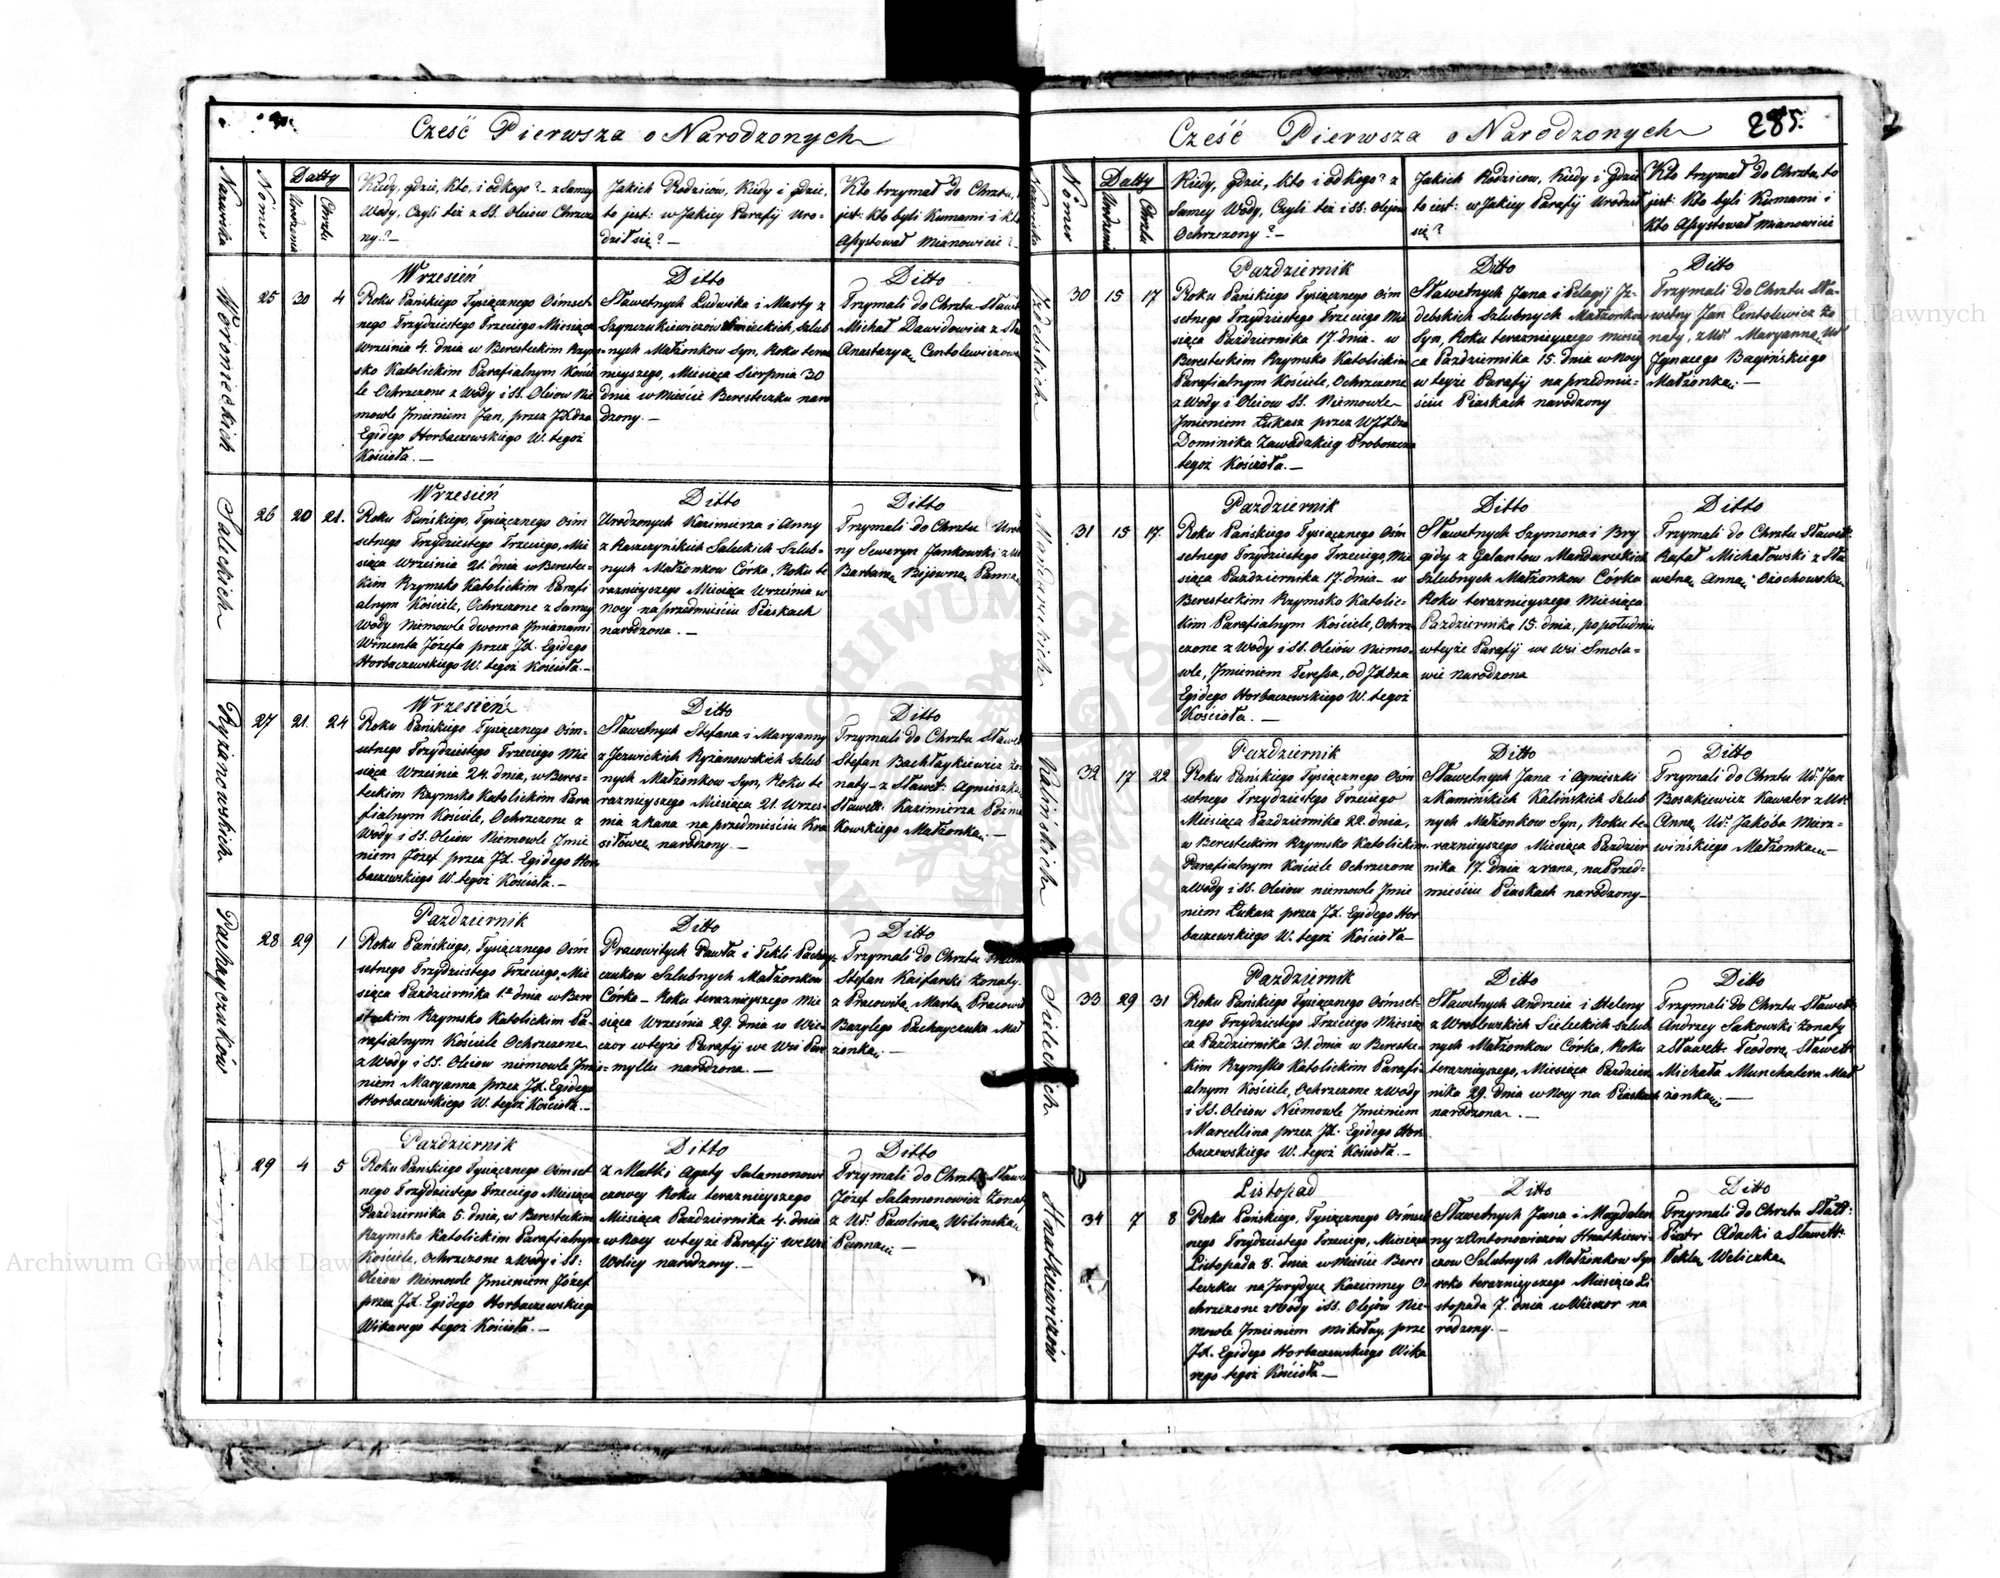 Cześć Pierwsza o Narodzonych
Nazwiska
Nómer
Datty
Urodzenia
Chrztu
Kiedy, gdzie, kto, i od kogo? z Samey
Wody, Czyli też z SS. Oleiów Chrzczo
ny.?
Jakich Rodziców, Kiedy i gdzie,
to jest: w Jakiey Parafij Uro-
dził się?
Kto trzymał do Chrztu,
jest: Kto byli Kumami i kto
Assystował mianowicie?
Woronieckich
25 30 4
Wrzesień
Roku Pańskiego Tysiącznego Ośmset
nego Trzydziestego Trzeciego Miesiąca
Września 4. dnia w Beresteckim Rzym
sko Katolickim Parafialnym Koście
le Ochrzczone z Wody i SS. Oleiow Nie
mowle Jmieniem Jan, przez JXdza
Egidego Horbaczewskiego W. tegoż
Kościoła.
Ditto
Sławetnych Ludwika i Marty z
nych Małżonkow Syn, Roku tera
znieyszego, Miesiąca Sierpnia 30
dnia w Mieście Beresteczku naro
dzony.
Ditto
Trzymali do Chrztu Sławet
Michał Dawidowicz z Sła
Anastazyą Centolewiczową
Saleckich
26 20 21.
Wrzesień
Roku Pańskiego, Tysiącznego Ośm
setnego Trzydziestego Trzeciego, Mie
siąca Września 21. dnia w Bereste-
ckim Rzymsko Katolickim Parafi
alnym Kościele, Ochrzczone z Samey
Wody Niemowle dwoma Jmionami
Wincenta Józefa przez JX. Egidego
Horbaczewskiego W. tegoż Kościoła.
Ditto
Urodzonych Kazimierza i Anny
z Raszczyńskich Saleckich Szlub-
nych Małżonkow Córka, Roku te
raznieyszego Miesiąca Września w
nocy na przedmieściu Piaskach
narodzona.
Ditto
Trzymali do Chrztu Urodzo
ny Seweryn Jankowski z
Barbarą Panną
Ryżanowskich
27 21. 24
Wrzesień
Roku Pańskiego Tysiącznego Ośm-
setnego Trzydziestego Trzeciego Mie
siąca Września 24. dnia, w Beres-
teckim Rzymsko Katolickim Para
fialnym Kościele, Ochrzczone z
Wody i SS. Oleiow Niemowle Jmie
niem Józef przez JX. Egidego Hor
baczewskiego W. tegoż Kościoła.
Ditto
Sławetnych Stefana i Maryanny
z Jezwickich Ryżanowskich Szlub
nych Małżonkow Syn, Roku te
raznieyszego Miesiąca 21. Wrześ-
nia z Rana na przedmieściu Kra
siłowce narodzony.
Ditto
Trzymali do Chrztu Sławet
Stefan Bachłaykiewicz żo-
naty z Sławet: Agnieszką
Sławett: Kazimierza Pozna
kowskiego Małżonką.
Pachayczuków
28 29 1
Pazdziernik
Roku Pańskiego, Tysiącznego Ośm
setnego Trzydziestego Trzeciego, Mie
siąca Pazdziernika 1go dnia w Bere
steckim Rzymsko Katolickim Pa-
rafialnym Kościele Ochrzczone
z Wody i SS. Oleiow niemowle Jmie
niem Maryanna przez JX. Egidego
Horbaczewskiego W. tegoż Kościoła.
Ditto
Pracowitych Pawła i Tekli Pachay-
czukow Szlubnych Małżonkow
Córka Roku teraznieyszego Mie
siąca Września 29. dnia w Wie
czor w teyże Parafij we Wsi Pere
myllu narodzona.
Ditto
Trzymali do Chrztu
Stefan Kasfarski żonaty
z Pracowitą Martą Pracowi
Bazylego Pachayczuka Mał
żonką.
29 4 5
Pazdziernik
Roku Pańskiego Tysiącznego Ośmset
nego Trzydziestego Trzeciego Miesiąca
Pazdziernika 5. dnia, w Beresteckim
Rzymsko Katolickim Parafialnym
Kościele, Ochrzczone z Wody i SS:
Oleiow Niemowle Jmieniem Józef
przez JX. Egidego Horbaczewskiego
Wikarego tegoż Kościoła.
Ditto
z Matki Agaty Salamonowi
czowey Roku teraznieyszego
Miesiąca Pazdziernika 4. dnia
w Nocy w teyże Parafij we Wsi
Wolicy narodzony.
Ditto
Trzymali do Chrztu Sławe
Józef Salamonowicz żonaty
z Ur. Pawliną Wilinską
Panną.
Cześć Pierwsza o Narodzonych
285.
Nazwiska
Nómer
Datty
Urodzenia
Chrztu
Kiedy, gdzie, kto i od kogo? z
Samey Wody, Czyli też i SS. Olejow
Ochrzczony?
Jakich Rodzicow, Kiedy i gdzie
to iest: w Jakiey Parafij Urodził
się?
Kto trzymał do Chrztu, to
jest: Kto byli Kumami i
kto Assystował mianowicie
Jzdebskich
30 15 17
Pazdziernik
Roku Pańskiego Tysiącznego Ośm
setnego Trzydziestego Trzeciego Mie
siąca Pazdziernika 17. dnia. w
Beresteckim Rzymsko Katolickim
Parafialnym Kościele, Ochrzczone
z Wody i Oleiow SS. Niemowle
Jmieniem Łukasz przez WJXdza
Dominika Zawadzkieg Proboszcza
tegoż Kościoła.
Ditto
Sławetnych Jana i Pelagij Jz-
debskich Szlubnych Małżonkow
Syn, Roku teraznieyszego miesią
ca Pazdziernika 15. dnia w Nocy
w teyże Parafij na przedmie-
ściu Piaskach narodzony
Ditto
Trzymali do Chrztu Sła-
wetny Jan Centolewicz żo
naty, z Ur: Maryanną Ur:
Jgnacego Bagińskiego
Małżonką.
Mandareckich
31 15 17.
Pazdziernik
Roku Pańskiego Tysiącznego Ośm
setnego Trzydziestego Trzeciego, Mie
siąca Pazdziernika 17. dnia w
Beresteckim Rzymsko Katolic-
kim Parafialnym Kościele, Ochrz
czone z Wody i SS. Oleiów Niemo-
wle, Jmieniem Teressa, od JXdza
Egidego Horbaczewskiego W. tegoż
Kościoła.
Ditto
Sławetnych Szymona i Bry
gidy z Galantow Mandareckich
Szlubnych Małżonkow Córka
Roku teraznieyszego Miesiąca
Pazdziernika 15. dnia, popołudniu
w teyże Parafij we Wsi Smola-
wie Narodzona
Ditto
Trzymali do Chrztu Sławett:
Rafał Michałowski z Sła
wetną Anną Ozochowską
Kalińskich
32 17 22
Pazdziernik
Roku Pańskiego Tysiącznego Ośm
setnego Trzydziestego Trzeciego
Miesiąca Pazdziernika 22. dnia,
w Beresteckim Rzymsko Katolickim
Parafialnym Kościele Ochrzczone
z Wody i SS. Oleiow niemowle Jmie
niem Łukasz przez JX. Egidego Hor
baczewskiego W. tegoż Kościoła
Ditto
Sławetnych Jana i Agnieszki
z Kamińskich Kalińskich Szlub
nych Małżonkow Syn, Roku te-
raznieyszego Miesiąca Pazdzier
nika 17. dnia z rana, na Przed-
mieściu Piaskach narodzony
Ditto
Trzymali do Chrztu Ur. Jan
Bosakiewicz Kawaler z Ur:
Anną Ur: Jakóba Mierz-
wińskiego Małżonką
Sieleckich
33 29 31
Pazdziernik
Roku Pańskiego Tysiącznego Ośmset
nego Trzydziestego Trzeciego Miesią
ca Pazdziernika 31. dnia w Bereste-
ckim Rzymsko Katolickim Parafi-
alnym Kościele, Ochrzczone z Wody
i SS. Oleiow Niemowle Jmieniem
Marcellina przez JX. Egidego Hor
baczewskiego W. tegoż Kościoła.
Ditto
Sławetnych Andrzeia i Heleny
z Wroblewskich Sieleckich Szlub
nych Małżonkow Córka, Roku
teraznieyszego, Miesiąca Pazdzier
nika 29. dnia w Nocy na Piaskach
narodzona.
Ditto
Trzymali do Chrztu Sławett:
Andrzey Sakowski żonaty
z Sławett: Teodorą Sławett:
Michała Munchalera Mał
żonką
Hnatkiewiczów
34 7 8
Listopad
Roku Pańskiego, Tysiącznego Ośmset
nego Trzydziestego Trzeciego, Miesiąca
Listopada 8. dnia w Mieście Beres
teczku na Jurydyce Kazienney O-
chrzczone z Wody i SS. Olejów Nie-
mowle Jmieniem Mikołay, prze
JX. Egidego Horbaczewskiego Wika
rego tegoż Kościoła
Ditto
Sławetnych Jana i Magdalen
ny z Antonowiczów Hnatkiewi-
czow Szlubnych Małżonkow Syn
roku teraznieyszego Miesiąca Li
stopada 7. dnia w Wieczor na
rodzony.
Ditto
Trzymali do Chrztu Sław:
Piotr Adacki z Sławett:
Teklą Weliczką
Archiwum Główne Akt Dawnych